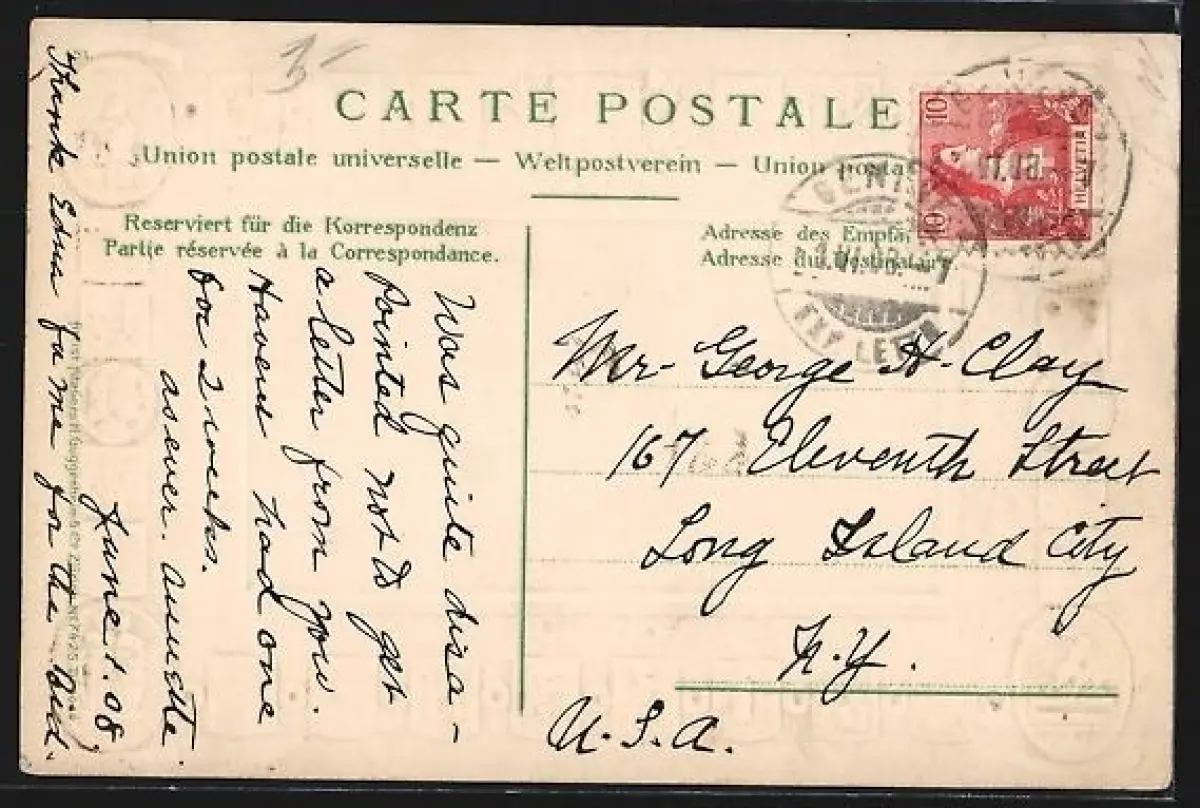 CARTE POSTALE
Union postale universelle — Weltpostverein — Union posta
Reserviert für die Korrespondenz
Partie réservée à la Correspondance.
Adresse des Empfä
Adresse du Destinataire.
10
10
HELVETIA
EXP LETT
Mr. George H. Clay
167 Eleventh Street
Long Island City
N.Y.
U.S.A.
Was quite disa-
pointed not to get
a letter from you.
Havens had one
for 2 weeks.
as ever. Annette.
June 1. 08
Thank Edna fa me for the